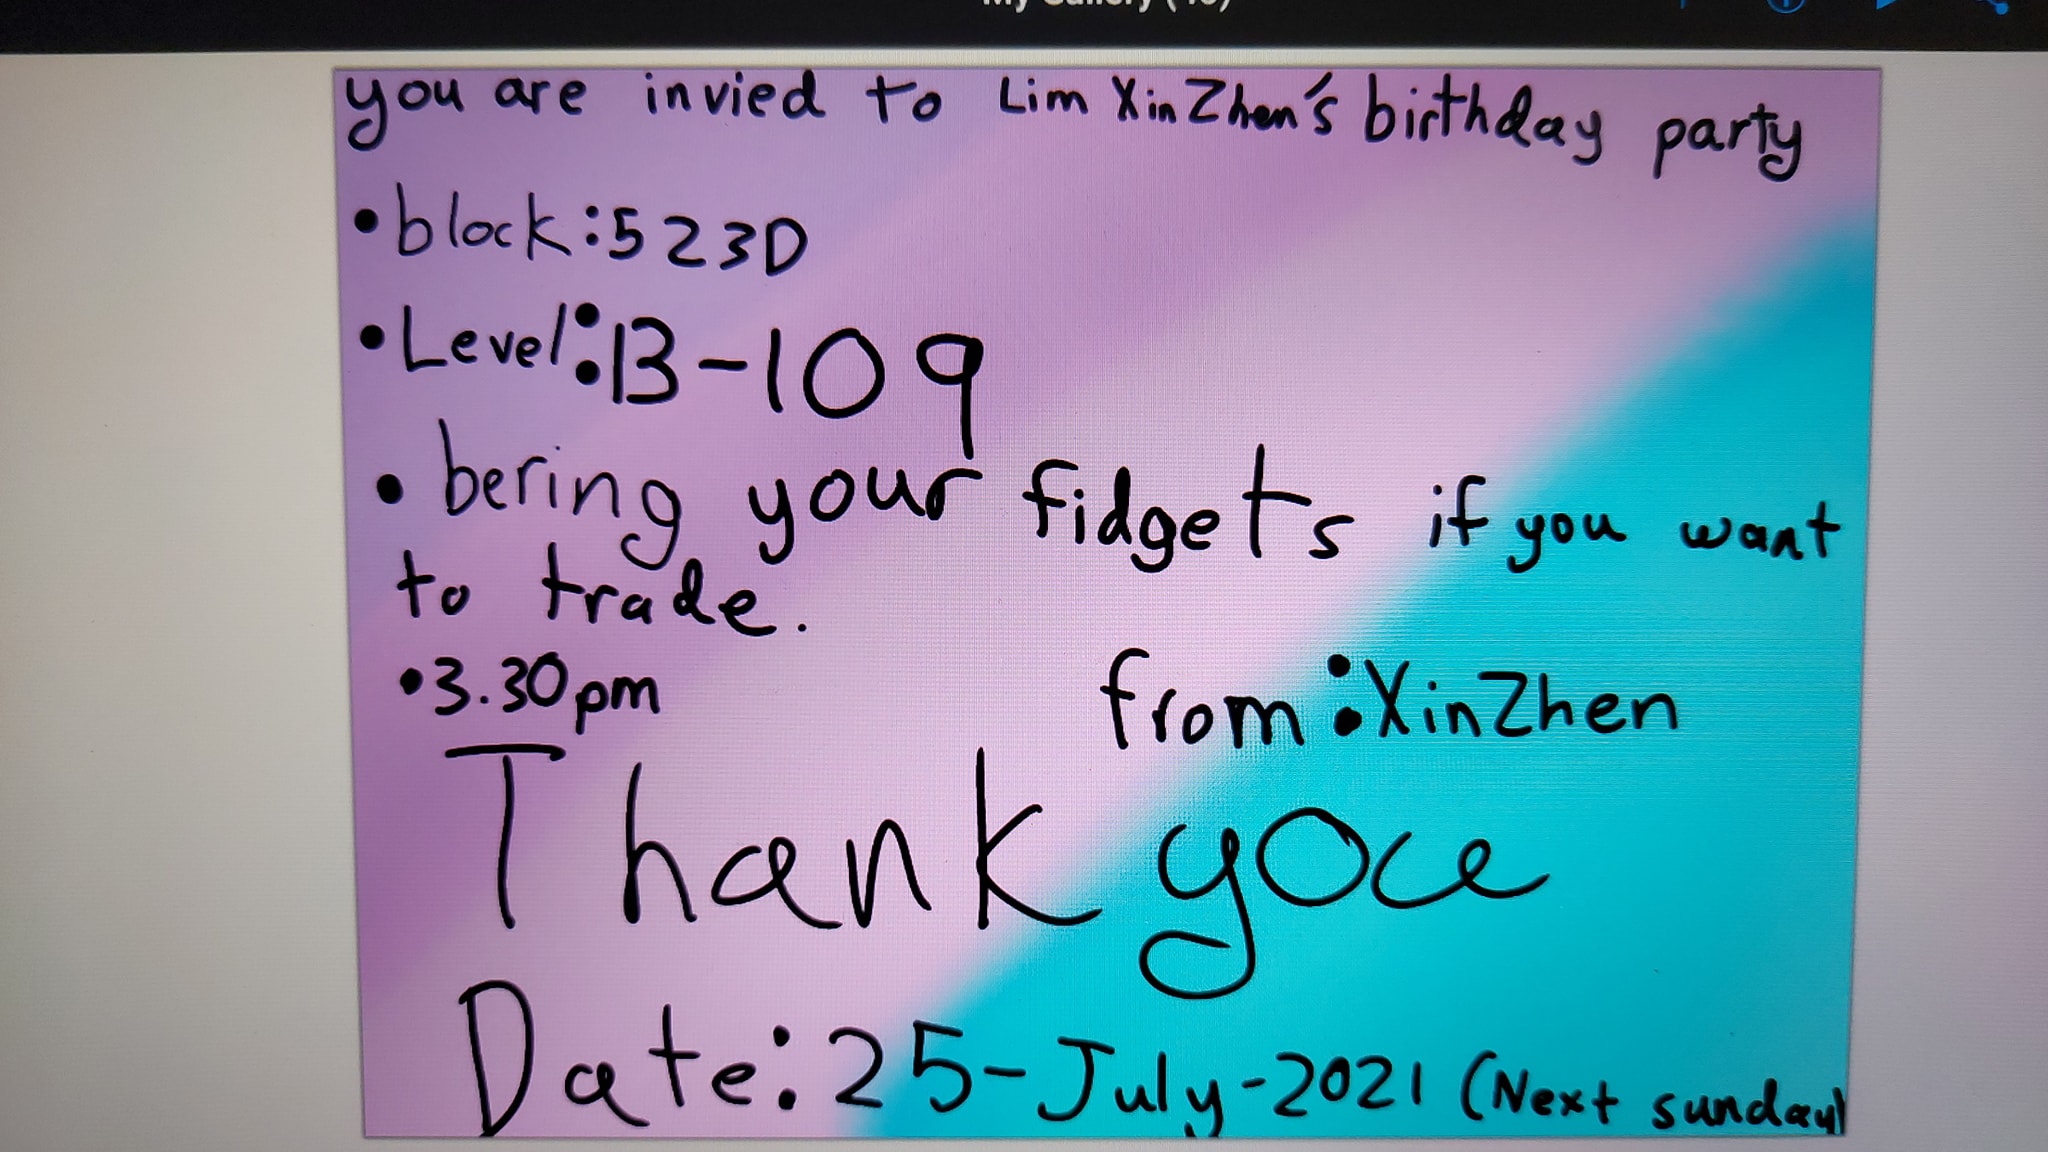 you are invied to Lim XinZhen's birthday party
• block:523D
• Level:13-109
• bering your fidgets if you want
to trade.
• 3.30pm
from:XinZhen
Thank you
Date:25-July-2021 (Next sunday)